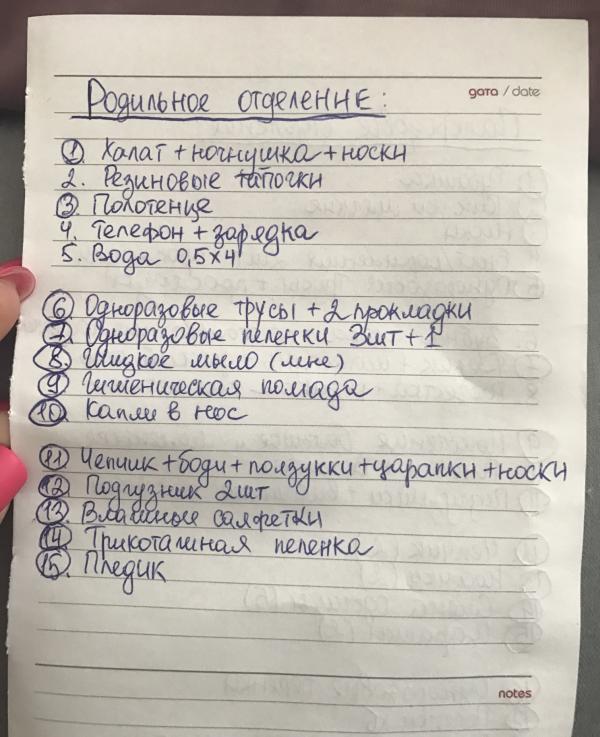 дата / date
Родильное отделение:
1. Халат + ночнушка + носки
2. Резиновые тапочки
3. Полотенце
4. Телефон + зарядка
5. Вода 0,5х4
6. Одноразовые трусы + 2 прокладки
7. Одноразовые пеленки 3шт + 1
8. Жидкое мыло (мне)
9. Гигиеническая помада
10. Капли в нос
11. Чепчик + боди + ползукки + царапки + носки
12. Подгузник 2шт
13. Влажные салфетки
14. Трикотажная пеленка
15. Пледик
notes